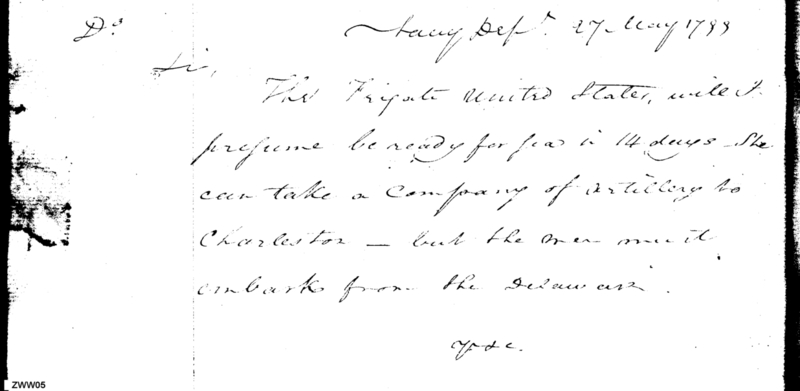 Do Navy Dept. 27 May 1799
Sir,
The Frigate United States, will I
presume be ready for sea in 14 days - She
can take a Company of Artillery to
Charleston — but the men must
embark from the Delaware.
Yr &c.
ZWW05